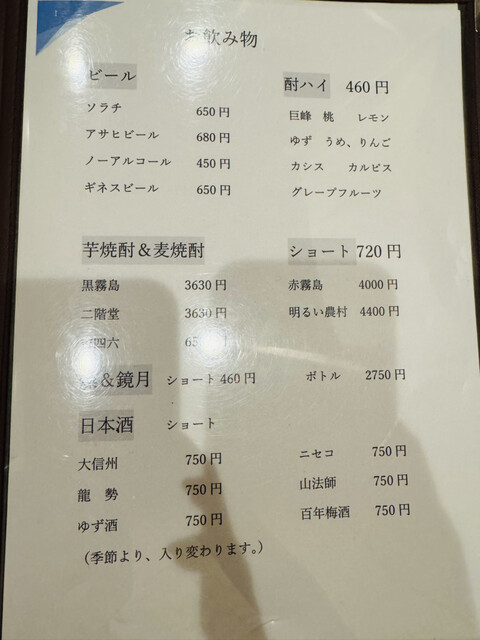 お飲み物
ビール
ソラチ 650円
アサヒビール 680円
ノーアルコール 450円
ギネスビール 650円
酎ハイ 460円
巨峰 桃 レモン
ゆず うめ、りんご
カシス カルピス
グレープフルーツ
芋焼酎&麦焼酎
黒霧島 3630円
二階堂 3630円
四六
ショート 720円
赤霧島 4000円
明るい農村 4400円
&鏡月 ショート 460円 ボトル 2750円
日本酒 ショート
大信州 750円
龍 勢 750円
ゆず酒 750円
ニセコ 750円
山法師 750円
百年梅酒 750円
(季節より、入り変わります。)